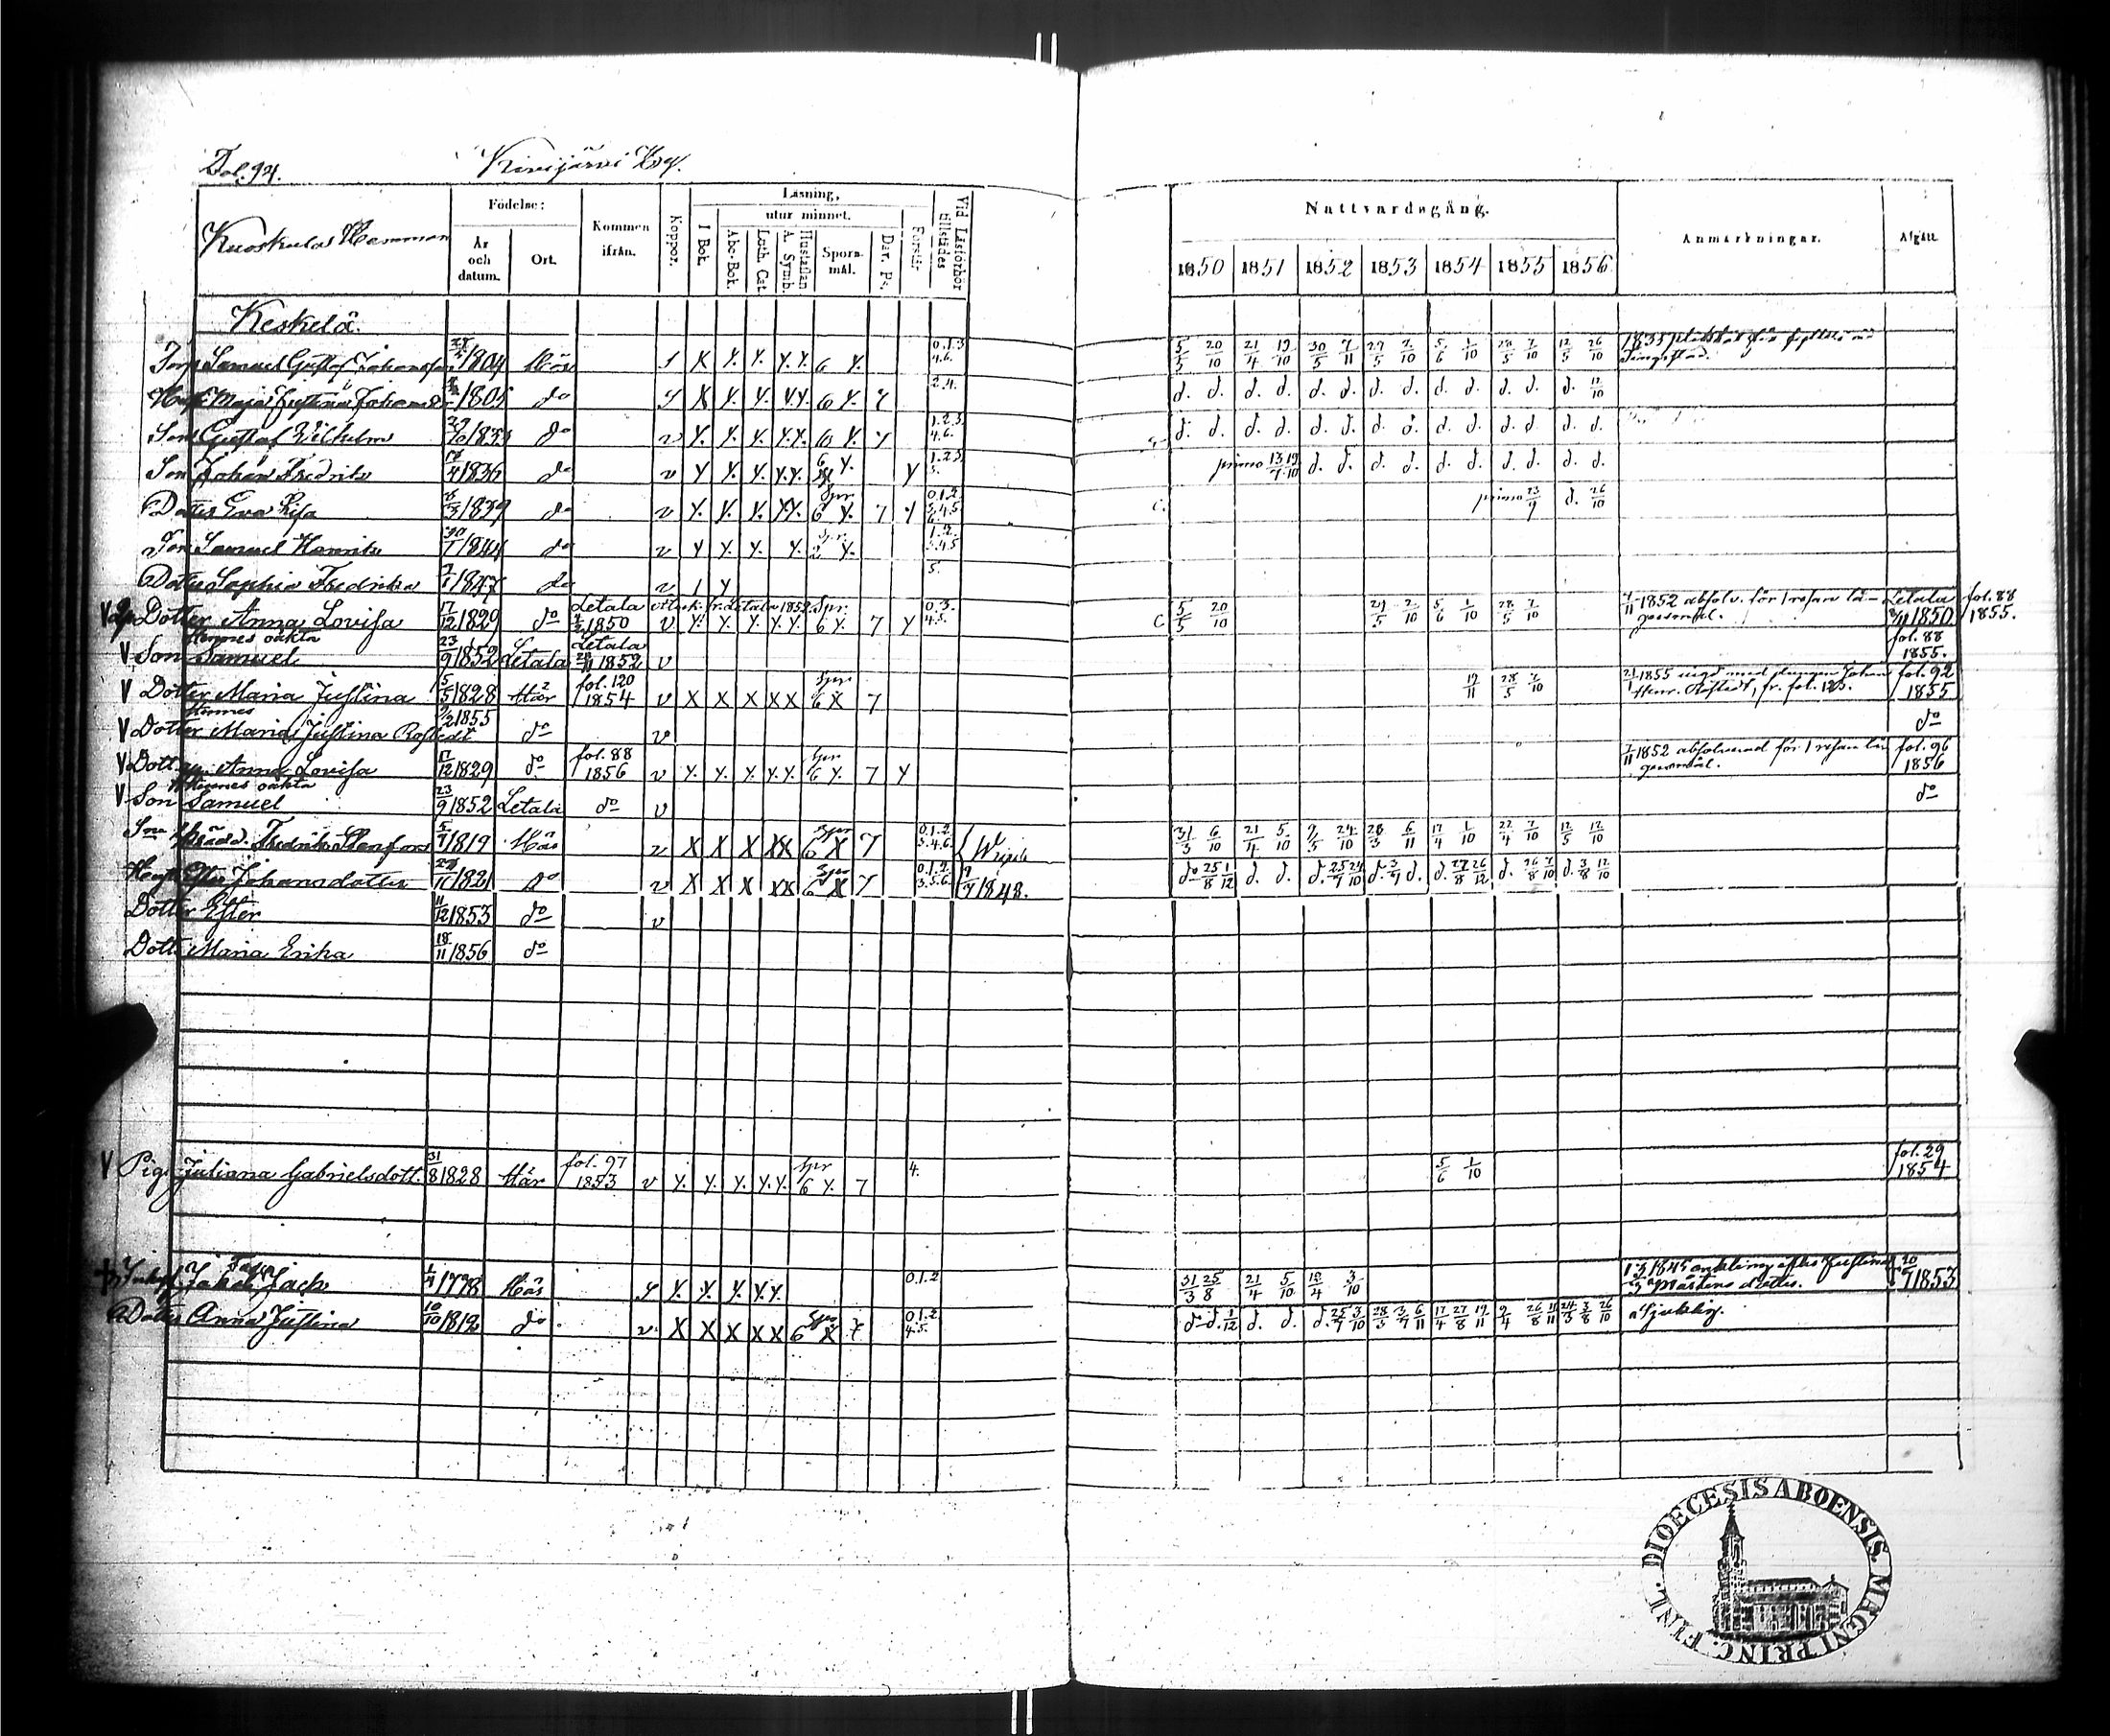 Fol. 94. Kivijärvi By.
Kuoskulas Hemman
Födelse: År och datum. Ort.
Kommen ifrån.
Koppor.
Läsning,
I Bok.
utur minnet.
Abc-Bok. Luth. Cat. A. Symb. Hustaflan Spörs-mål. Dav. Ps.
Förstår
Vid Läsförhör tillstädes
Nattvardsgång.
1850 1851 1852 1853 1854 1855 1856
Anmärkningar.
Afgått.
Keskelä.
Torp. Samuel Gustaf Johansson 1804 S X Y. Y. Y. Y. 6 Y. 0.1.3 4.6. 5/5 20/10 21/4 19/10 30/5 7/11 29/5 2/10 5/6 1/10 28/5 7/10 12/5 26/10
Hust. Maja Justina Johansdr 1805 do S X Y. Y. Y.Y. 6 Y. 7 2.4. d. d. d. d. d. d. d. d. d. d. d. d. d. 12/10
Son Gustaf Wilhelm do v Y. Y. Y. Y.Y. Y. 7 1.2.3. 4.6. d. d. d. d. d. d. d. d. d. d. d. d. d. d.
Son Johan Fredrik 1836 do v Y Y. Y. Y.Y. 6 Y. Y 1.2.3. 5. primo 13/7 19/10 d. d. d. d. d. d. d. d. d. d.
Dotter Eva Lisa 8/3 1839 do v Y. Y. Y. Y.Y. Spr 6 Y. 7 Y 0.1.2. 3.4.5 6. C. primo 23/9 d. 26/10
Son Samuel Henrik 30/1 1844 do v Y Y. Y. Y. Spr. 2 Y. 1.2. 3.4.5
Dotter Sophia Fredrika 1847 do v 1 Y 5.
V Dotter Anna Lovisa 17/12 1829 do Letala 1850 v Y. Y. Y. Y. Y. Spr. 6 Y. 7 Y 0.3. 4.5. C 5/5 20/10 29/5 2/10 5/6 1/10 28/5 7/10 1852 absolv. för 1 resan lä- Letala 1850 fol. 88 1855.
gersmål.
Hennes oäkta
V Son Samuel 23/9 1852 Letala Letala 1852 v fol. 88 1855.
V Dotter Maria Justina 5/5 1828 Här fol. 120 1854 v X X X X X Spr 6 X 7 19/11 28/5 7/10 1855 vigd med drengen Johan fol. 92 1855
Henr. Rostedt, fr. fol. 125.
Hennes
V Dotter Maria Justina Rostedt 9/2 1855 do v do
V Dott. Anna Lovisa 17/12 1829 do fol. 88 1856 v Y. Y. Y. Y. Y. Spr 6 Y. 7 Y 1852 absolverad för 1 resan lä- fol. 96 1856
gersmål.
Hennes oäkta
V Son Samuel 23/9 1852 Letala do v do
Skrädd. Fredrik Stenfors 5/7 1819 Här v X X X X X Spr 6 X 7 0.1.2. 3.4.6. 31/3 6/10 21/4 5/10 9/5 24/10 28/3 6/11 17/4 1/10 22/4 7/10 12/5 12/10
Hust. Ester Johansdotter 1821 do v X X X X X Spr 6 X 7 0.1.2. 3.5.6. 1848. do 25/8 1/12 d. d. d. 25/7 24/10 d. 3/7 d. d. 27/8 26/12 d. 26/8 7/10 d. 3/8 12/10
Dotter Ester 11/12 1853 do v
Dott. Maria Erika 18/11 1856 do
V Pig. Juliana Gabrielsdott. 31/8 1828 Här fol. 97 1853 v Y. Y. Y. Y. Y. Spr 6 Y. 7 4. 5/6 1/10 fol. 29 1854
Jakob Jack 1798 Här S Y. Y. Y. Y.Y. 0.1.2 31/3 25/8 21/4 5/10 18/4 3/10 1845 enkling efter Justina 20/7 1853
Mårtens dotter.
Dotter Anna Justina 10/10 1819 do. v. X X X X X Spr 6 X 7 0.1.2. 4.5. do d. 1/12 d. d. d. 25/7 3/10 28/3 3/7 6/11 17/4 27/8 19/11 9/4 26/8 11/11 24/3 3/8 26/10 Sjuklig.
FINL. DIOECESIS ABOENSIS. MAGNI PRINC.